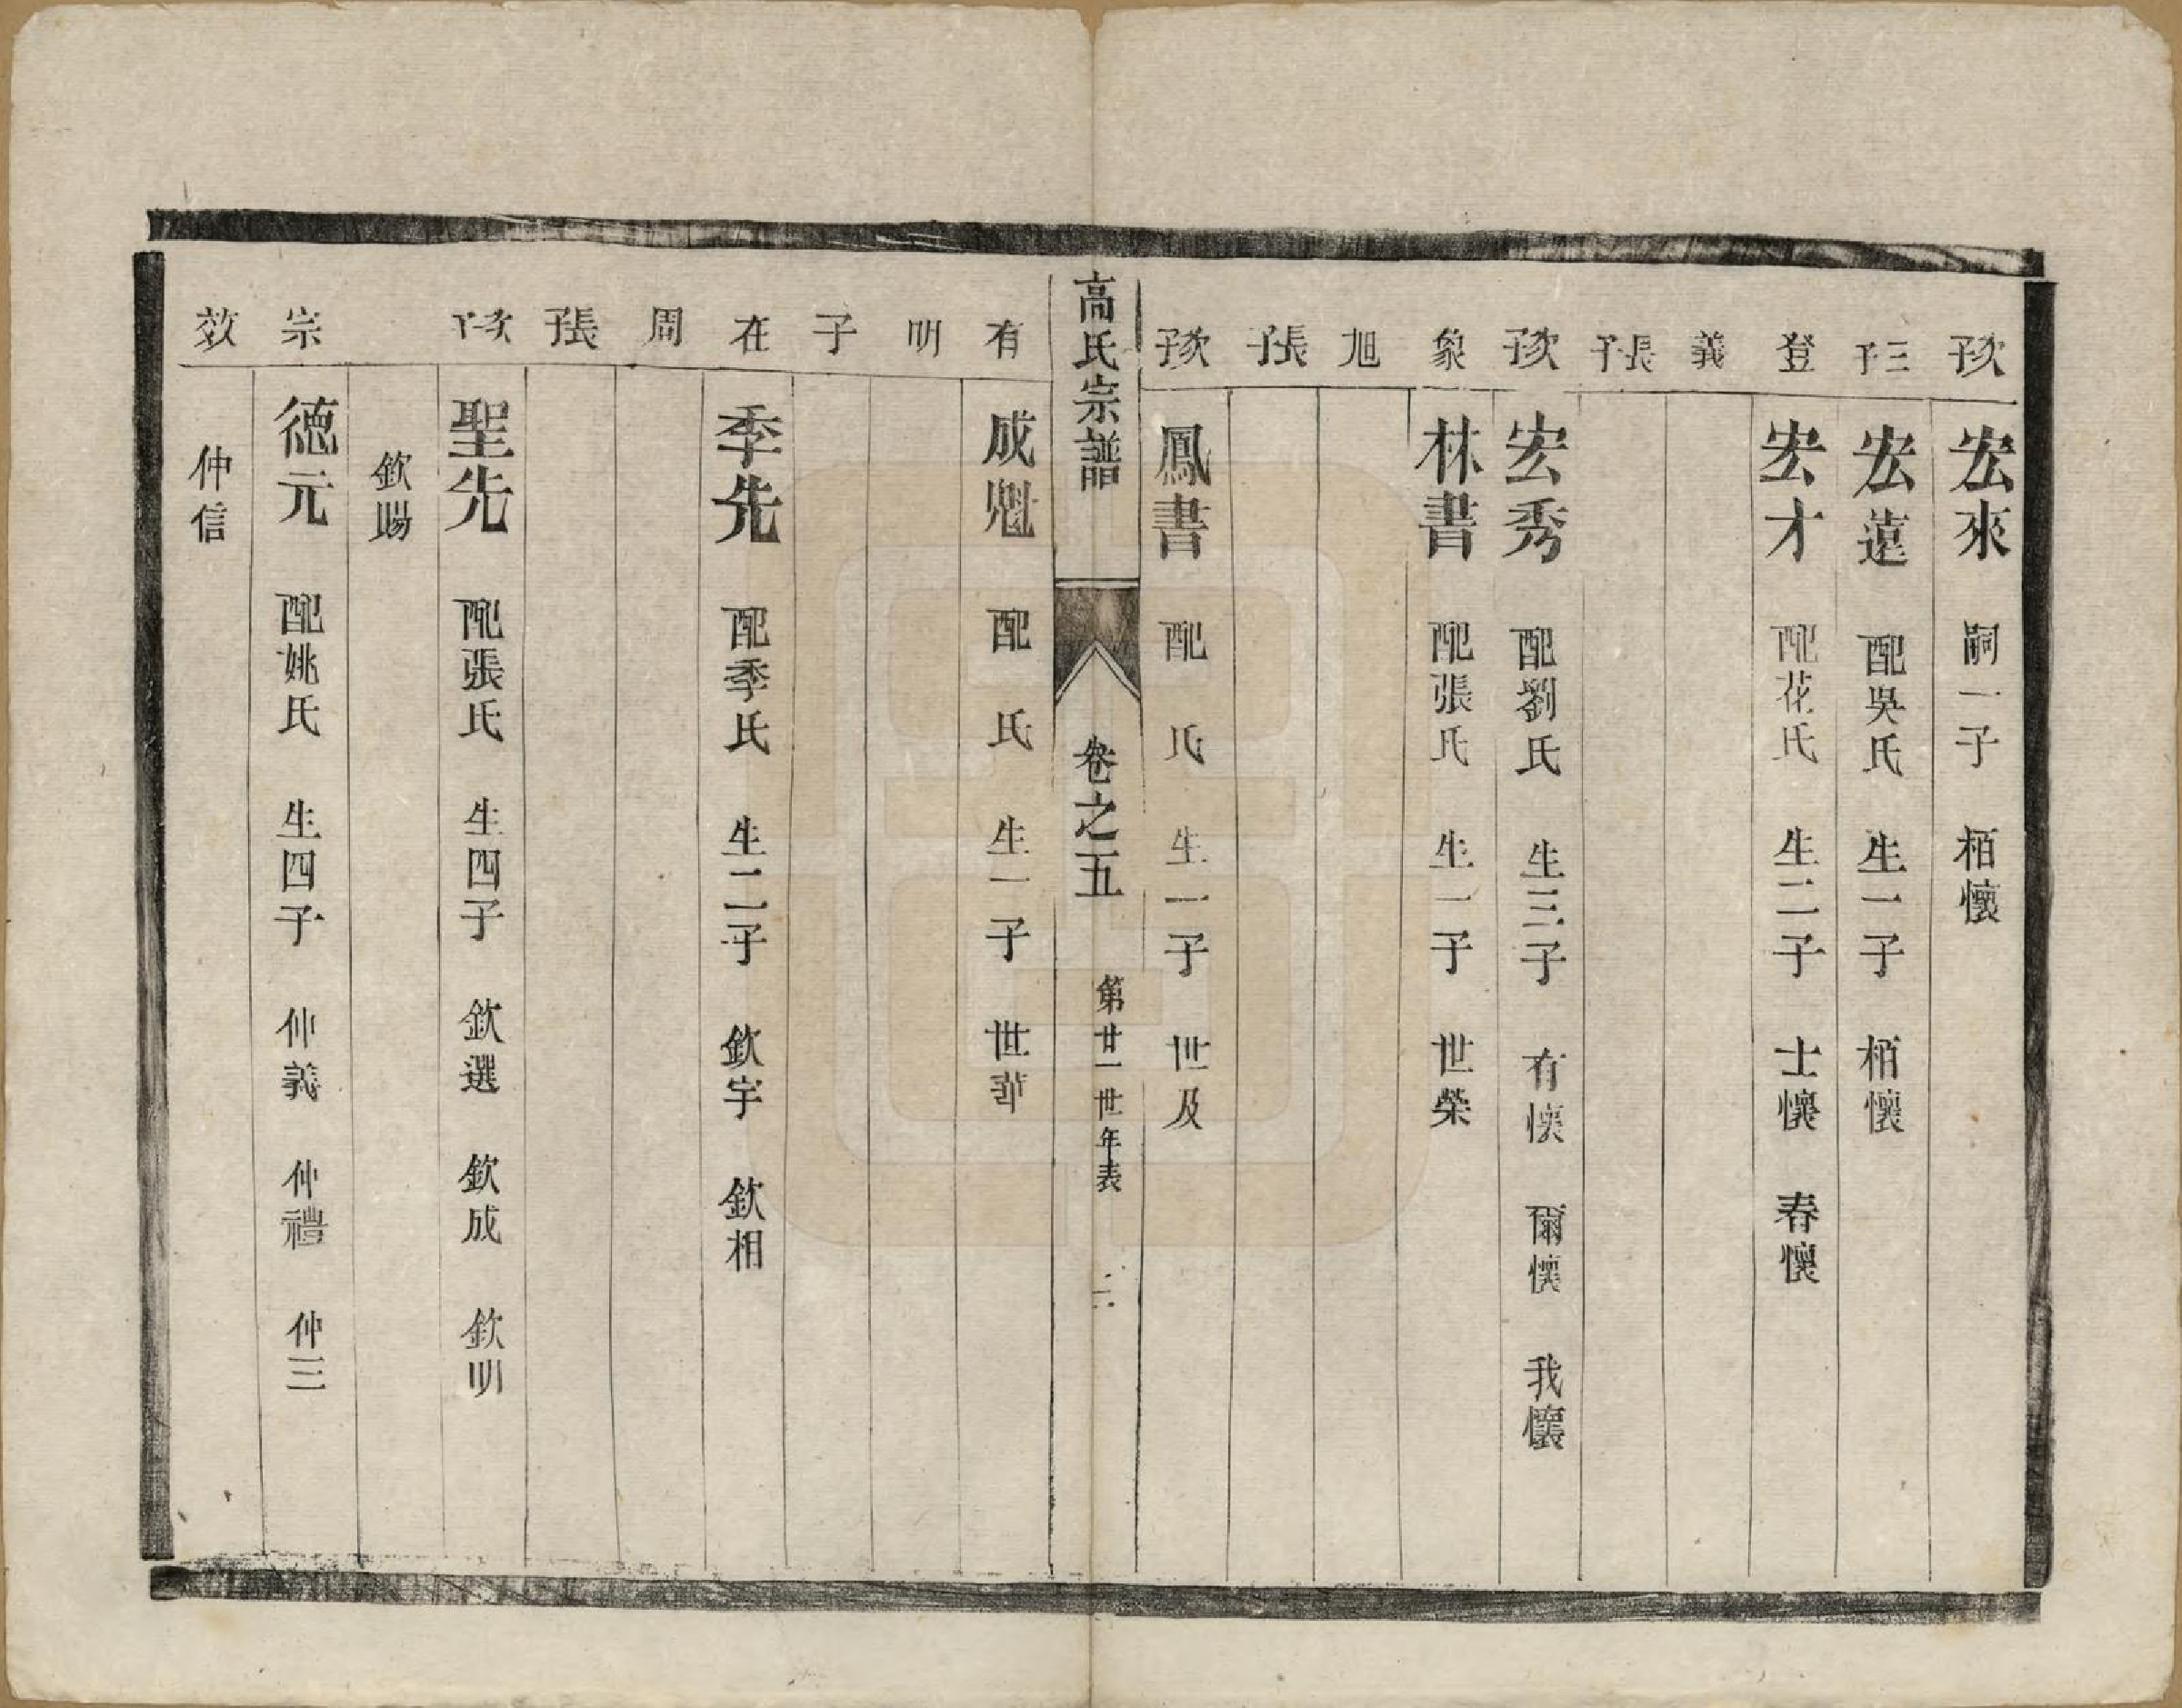 次子 宏來 嗣一子 栢懷
三子 宏遠 配吳氏 生一子 栢懷
登 宏才 配花氏 生二子 士懷 春懷
義
長子
次子 宏秀 配劉氏 生三子 有懷 爾懷 我懷
象 林書 配張氏 生一子 世榮
旭
長子
次子 鳳書 配 氏 生一子 世及
高氏宗譜 卷之五 第廿一世年表 二
有 成魁 配 氏 生一子 世華
明
子
在 季先 配季氏 生二子 欽宇 欽相
周
長子
次子 聖先 配張氏 生四子 欽選 欽成 欽明
欽賜
宗 德元 配姚氏 生四子 仲義 仲禮 仲三
效 仲信